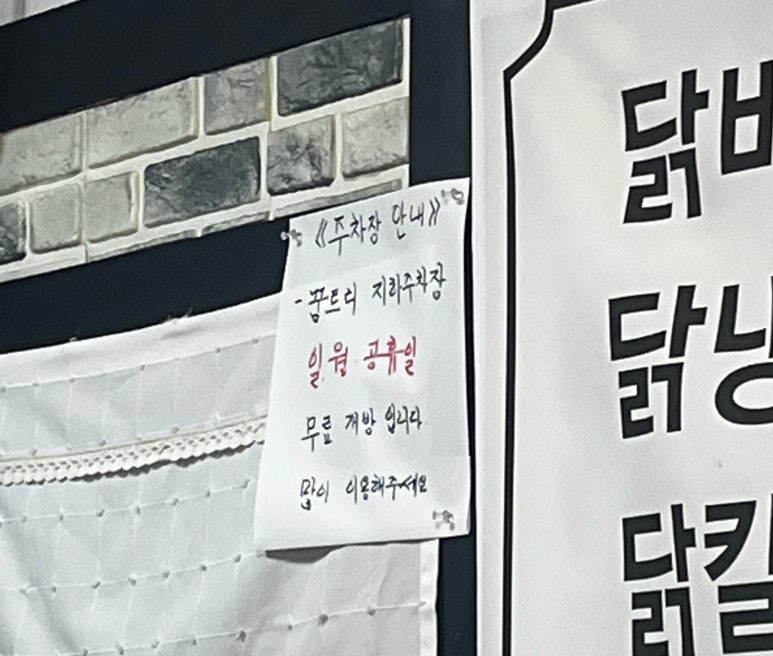 《주차장 안내》
- 꿈트리 지하주차장
일.월 공휴일
무료 개방 입니다
많이 이용해주세요
닭비
닭냉
닭칼